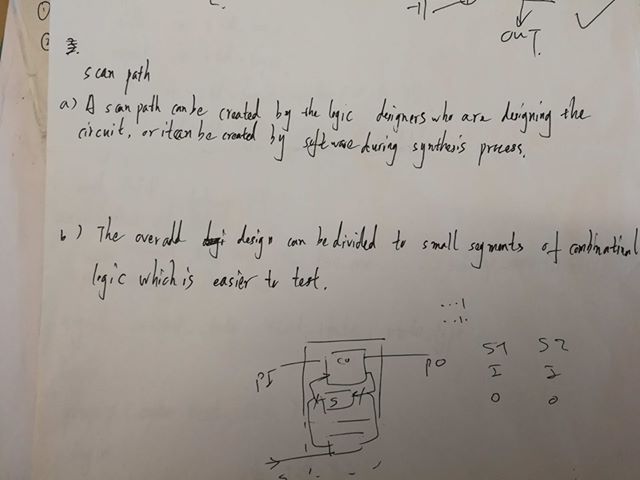 OUT.
3.
scan path
a) A scan path can be created by the logic designers who are designing the
circuit, or it can be created by software during synthesis process.
b) The overall design can be divided to small segments of combinational
logic which is easier to test.
PI
CU
PO
S
S1 S2
I I
0 0